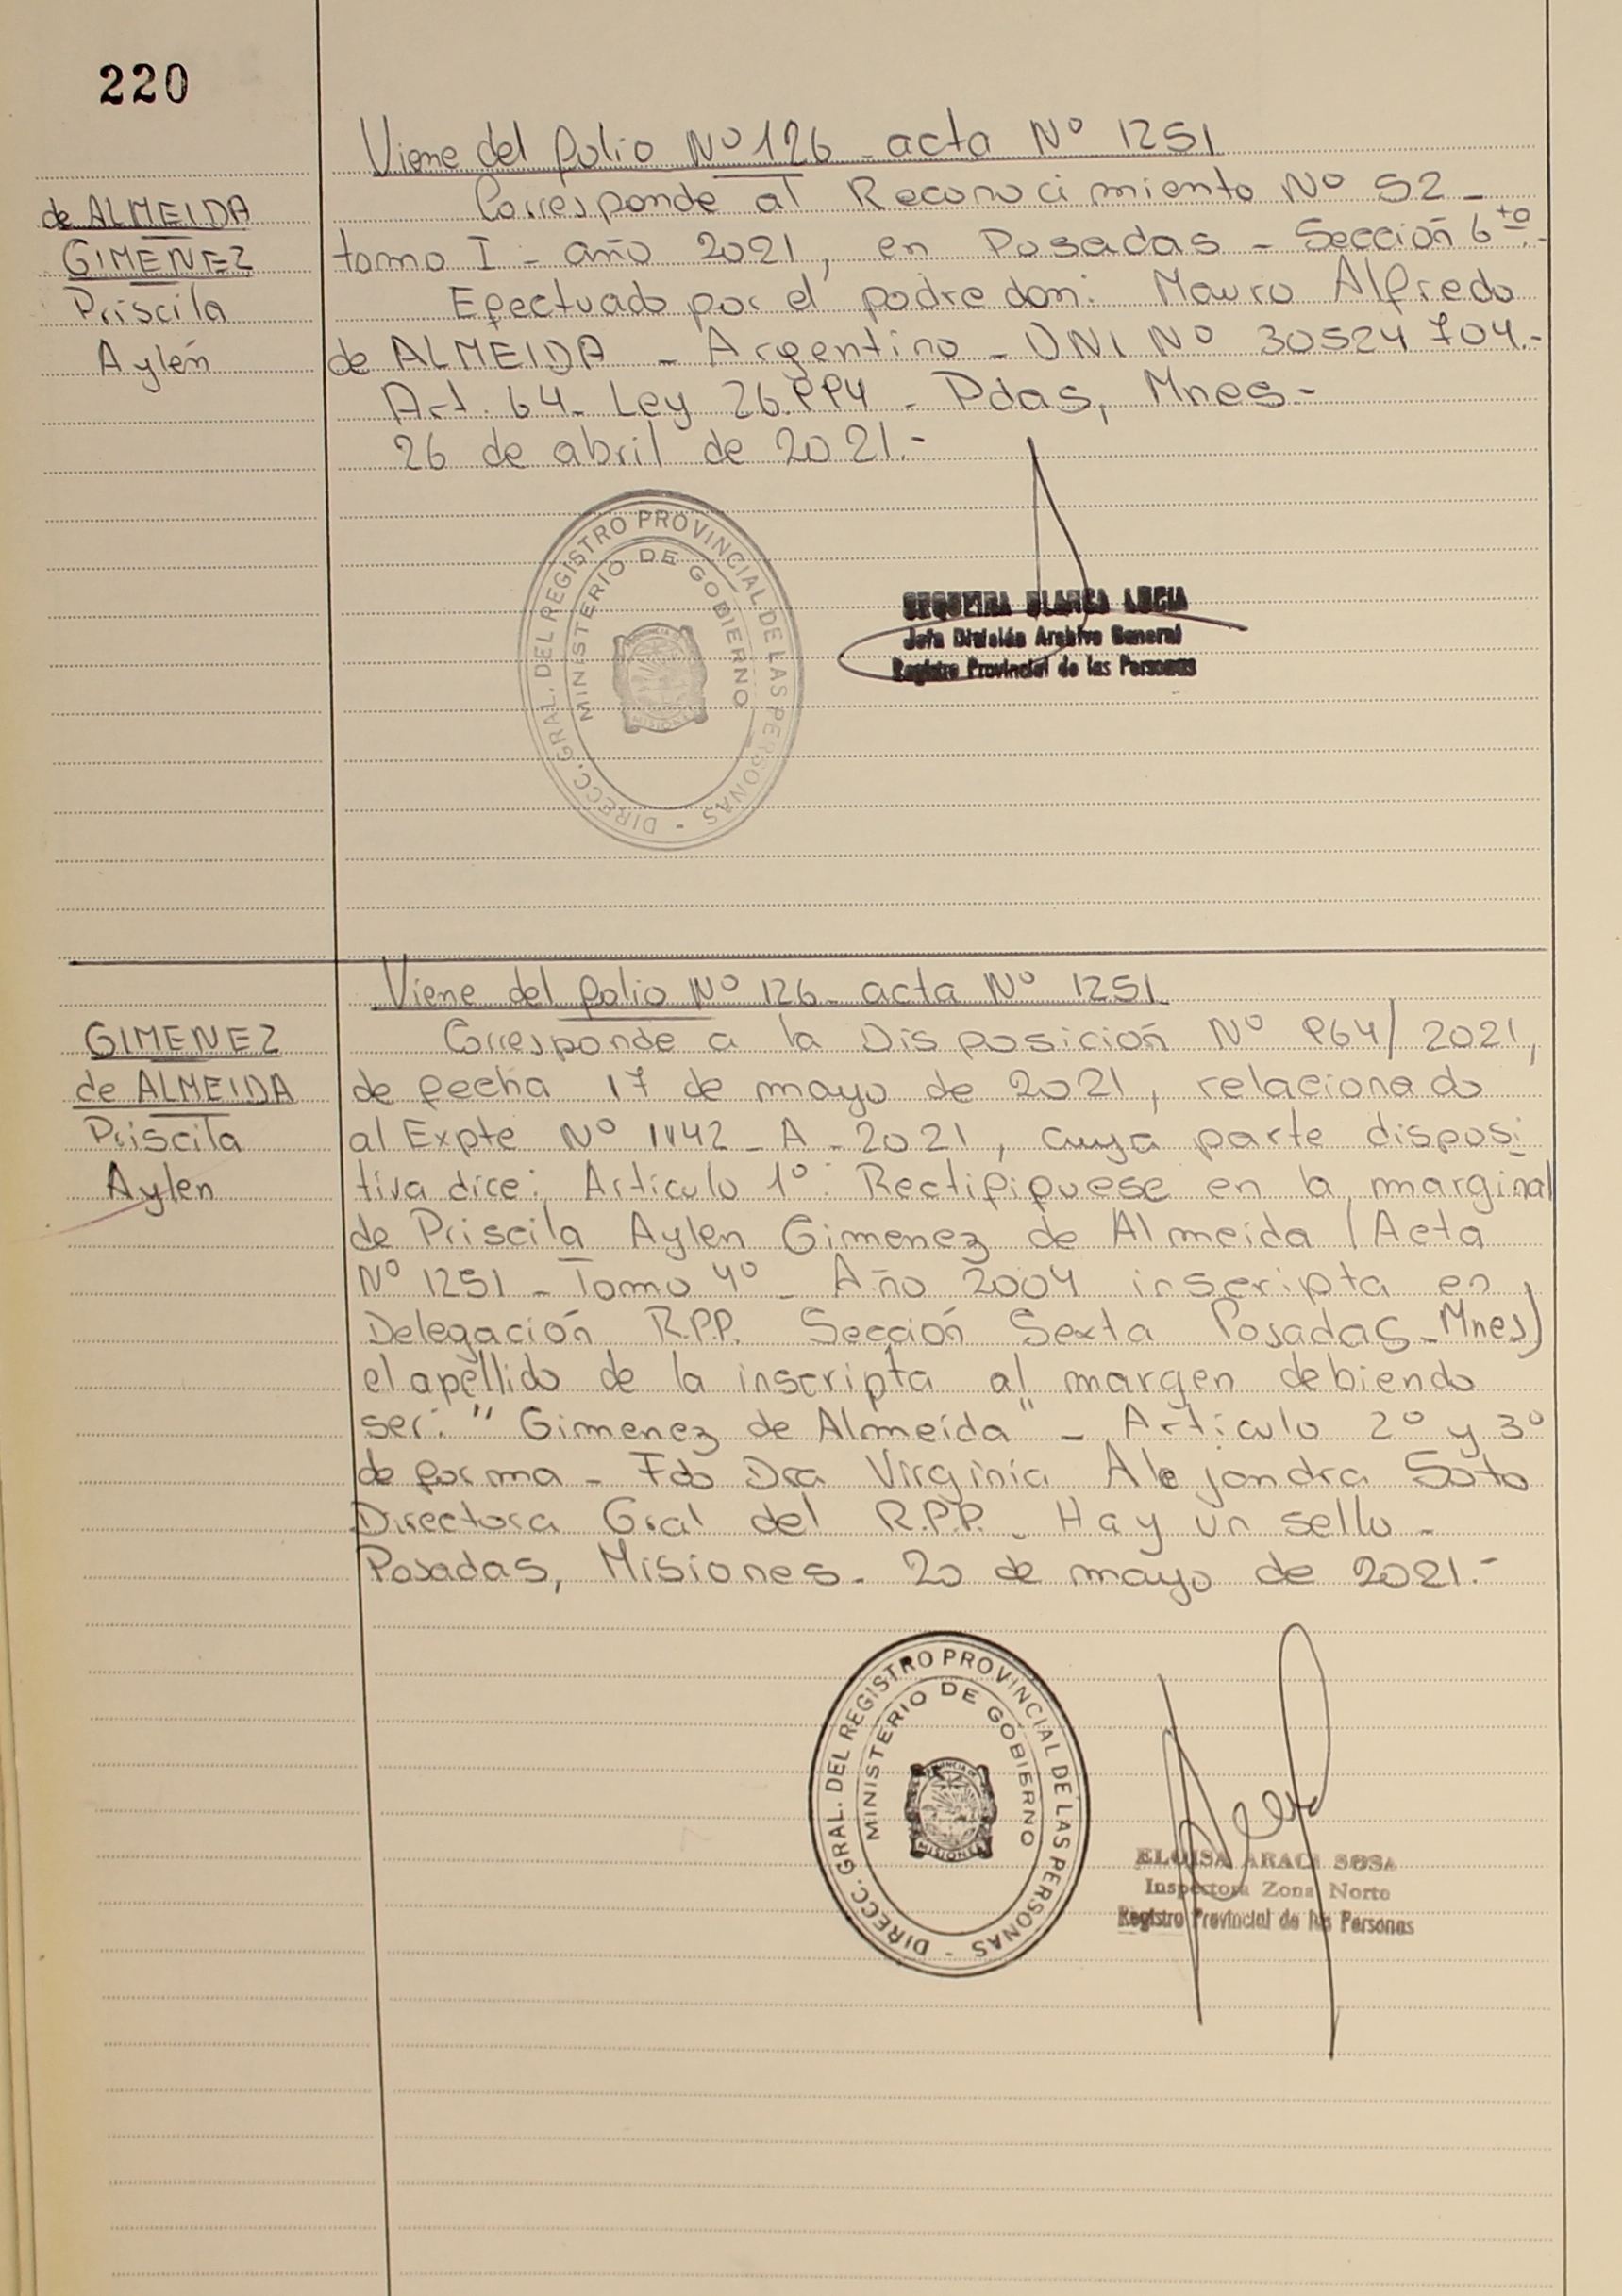 220
Viene del folio Nº 126 - acta Nº 1251
de ALMEIDA
GIMENEZ
Priscila
Aylén
Corresponde al Reconocimiento Nº 52 -
tomo I - año 2021, en Posadas - Sección 6ta.-
Efectuado por el padre don: Mauro Alfredo
de ALMEIDA - Argentino - DNI Nº 30524704.-
Art. 64 - Ley 26.994 - Pdas, Mnes.-
26 de abril de 2021.-
DIRECC. GRAL. DEL REGISTRO PROVINCIAL DE LAS PERSONAS -
MINISTERIO DE GOBIERNO
MISIONES
SEQUEIRA BLANCA LUCIA
Jefa División Archivo General
Registro Provincial de las Personas
Viene del folio Nº 126 - acta Nº 1251
GIMENEZ
de ALMEIDA
Priscila
Aylen
Corresponde a la Disposición Nº 964/2021,
de fecha 17 de mayo de 2021, relacionado
al Expte Nº - A - 2021, cuya parte disposi
tiva dice: Artículo 1º: Rectifiquese en la marginal
de Priscila Aylen Gimenez de Almeida (Acta
Nº 1251 - Tomo 4º - Año 2004 inscripta en
Delegación R.P.P. Sección Sexta Posadas - Mnes)
el apellido de la inscripta al margen debiendo
ser: "Gimenez de Almeida" - Artículo 2º y 3º
de forma - Fdo Dra Virginia Alejandra Soto
Directora Gral del R.P.P. - Hay un sello -
Posadas, Misiones - 20 de mayo de 2021.-
DIRECC. GRAL. DEL REGISTRO PROVINCIAL DE LAS PERSONAS -
MINISTERIO DE GOBIERNO
PROVINCIA DE
MISIONES
ELOISA ARACI SOSA
Inspectora Zona Norte
Registro Provincial de las Personas